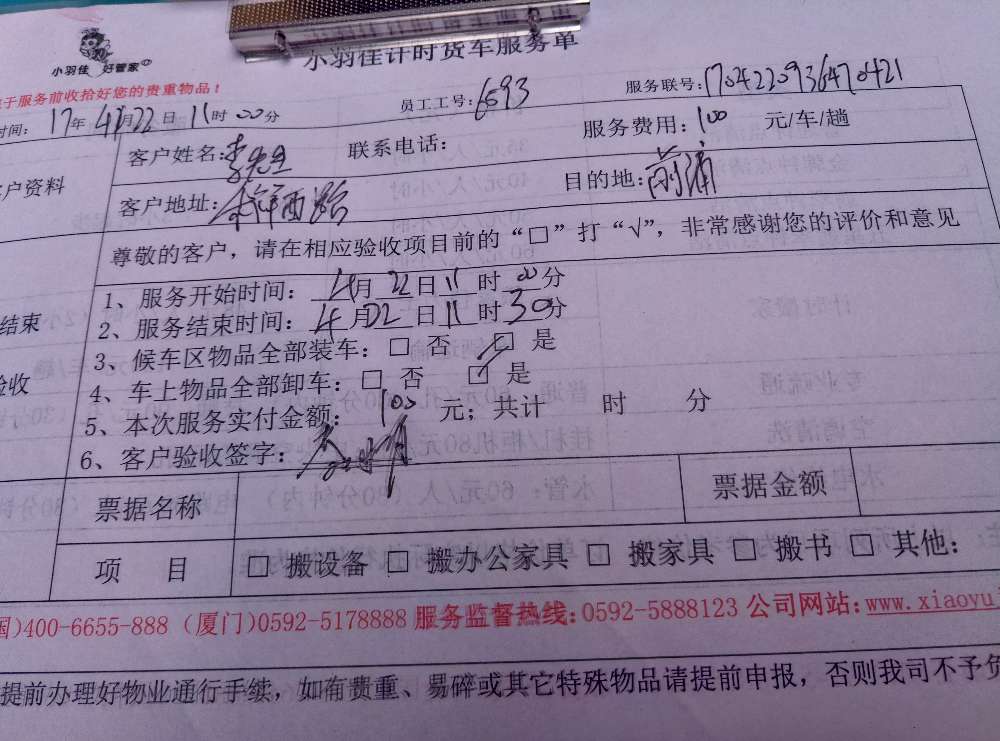 小羽佳 好管家
小羽佳计时货车服务单
于服务前收拾好您的贵重物品！
时间：17年4月22日11时00分 员工工号：6593 服务联号：1704220936470421
客户资料
客户姓名：李先生 联系电话： 服务费用：100 元/车/趟
客户地址：祥西路 目的地：前浦
尊敬的客户，请在相应验收项目前的“□”打“√”，非常感谢您的评价和意见
结束
验收
1、服务开始时间：4月22日11时00分
2、服务结束时间：4月22日11时30分
3、候车区物品全部装车：□ 否 ☑ 是
4、车上物品全部卸车：□ 否 ☑ 是
5、本次服务实付金额：100元；共计 时 分
6、客户验收签字：
票据名称 票据金额
项 目 □ 搬设备 □ 搬办公家具 □ 搬家具 □ 搬书 □ 其他：
国)400-6655-888（厦门)0592-5178888 服务监督热线：0592-5888123 公司网站：www.xiaoyu
提前办理好物业通行手续，如有贵重、易碎或其它特殊物品请提前申报，否则我司不予负